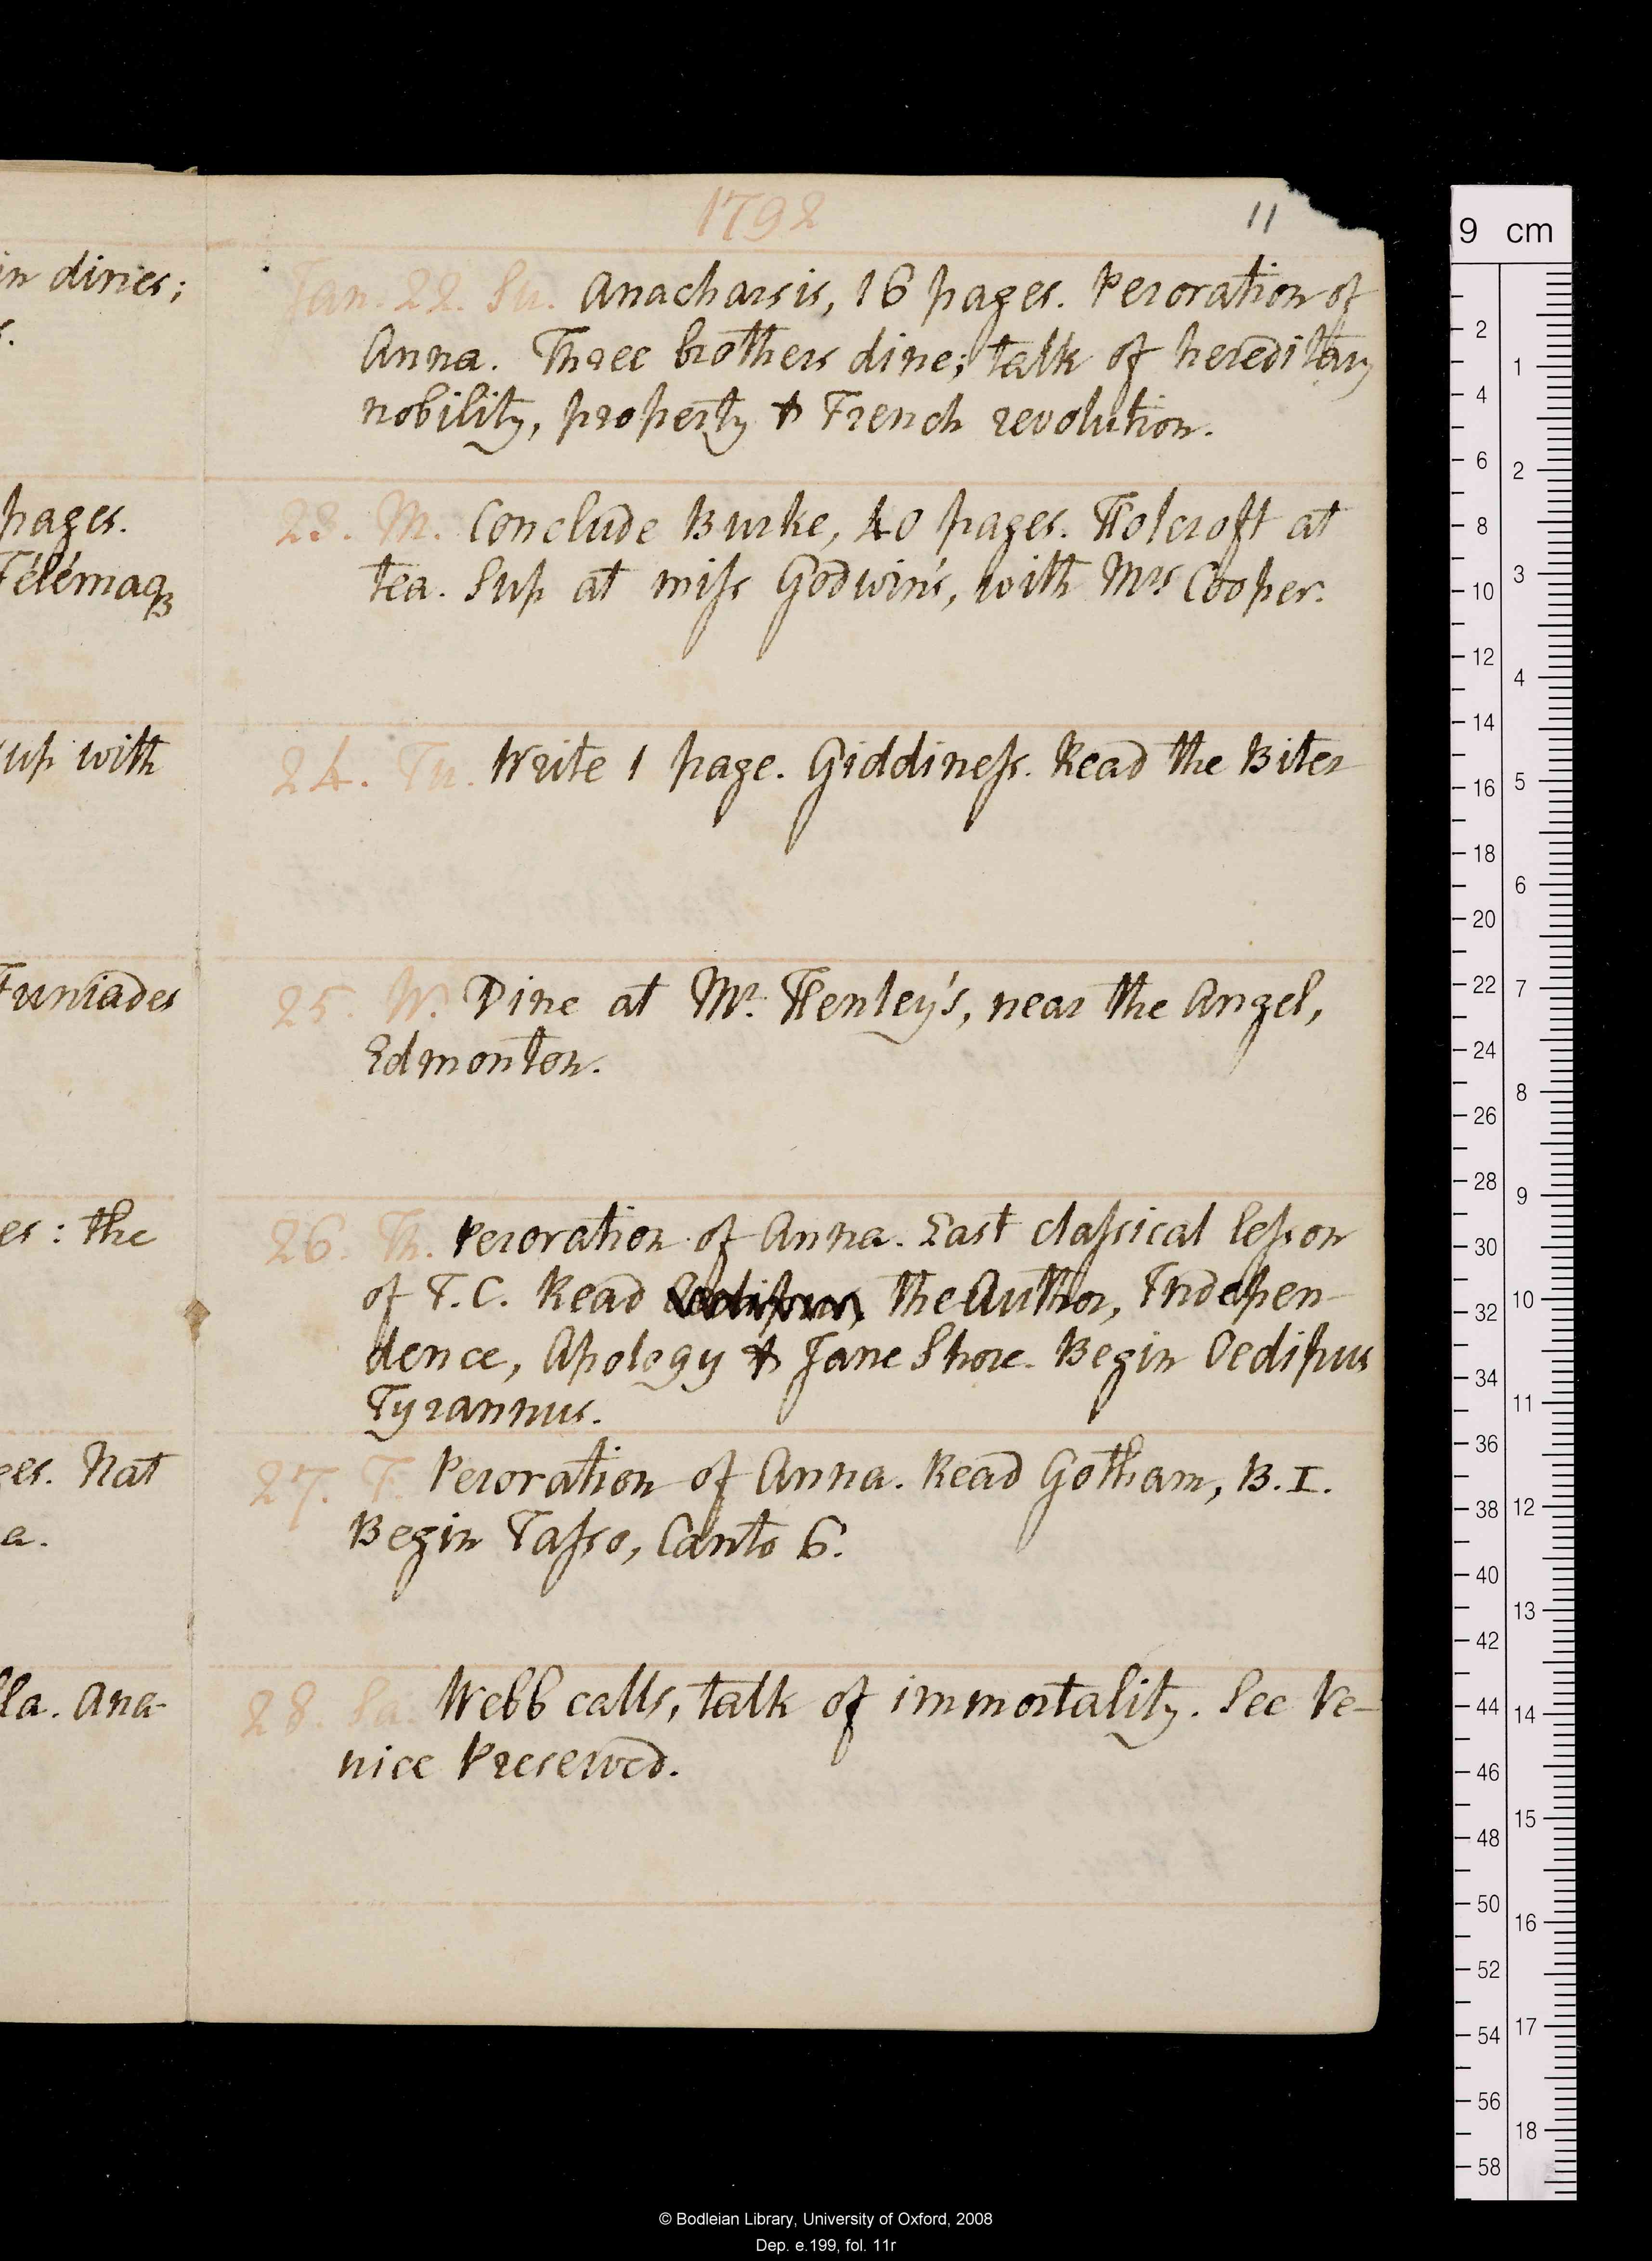 in dines;
s.
pages.
Télémaq
up with
uniades
es: the
ges. Nat
a.
lla. Ana-
1792
11
Jan. 22. Su. Anacharsis, 16 pages. Peroration of
Anna. Three brothers dine; talk of hereditary
nobility, property & French revolution.
23. M. Conclude Burke, 40 pages. Holcroft at
tea. Sup at miss Godwin's, with Mrs Cooper.
24. Tu. Write 1 page. Giddiness. Read the Biter
25. W. Dine at Mr. Henley's, near the Angel,
Edmonton.
26. Th. Peroration of Anna. Last classical lesson
of T.C. Read the Author, Indepen-
dence, Apology & Jane Shore. Begin Oedipus
Tyrannus.
27. F. Peroration of Anna. Read Gotham, B.I.
Begin Tasso, Canto 6.
28. Sa. Webb calls, talk of immortality. See Ve-
nice Preserved.
9 cm
2
4
6
8
10
12
14
16
18
20
22
24
26
28
30
32
34
36
38
40
42
44
46
48
50
52
54
56
58
1
2
3
4
5
6
7
8
9
10
11
12
13
14
15
16
17
18
© Bodleian Library, University of Oxford, 2008
Dep. e.199, fol. 11r